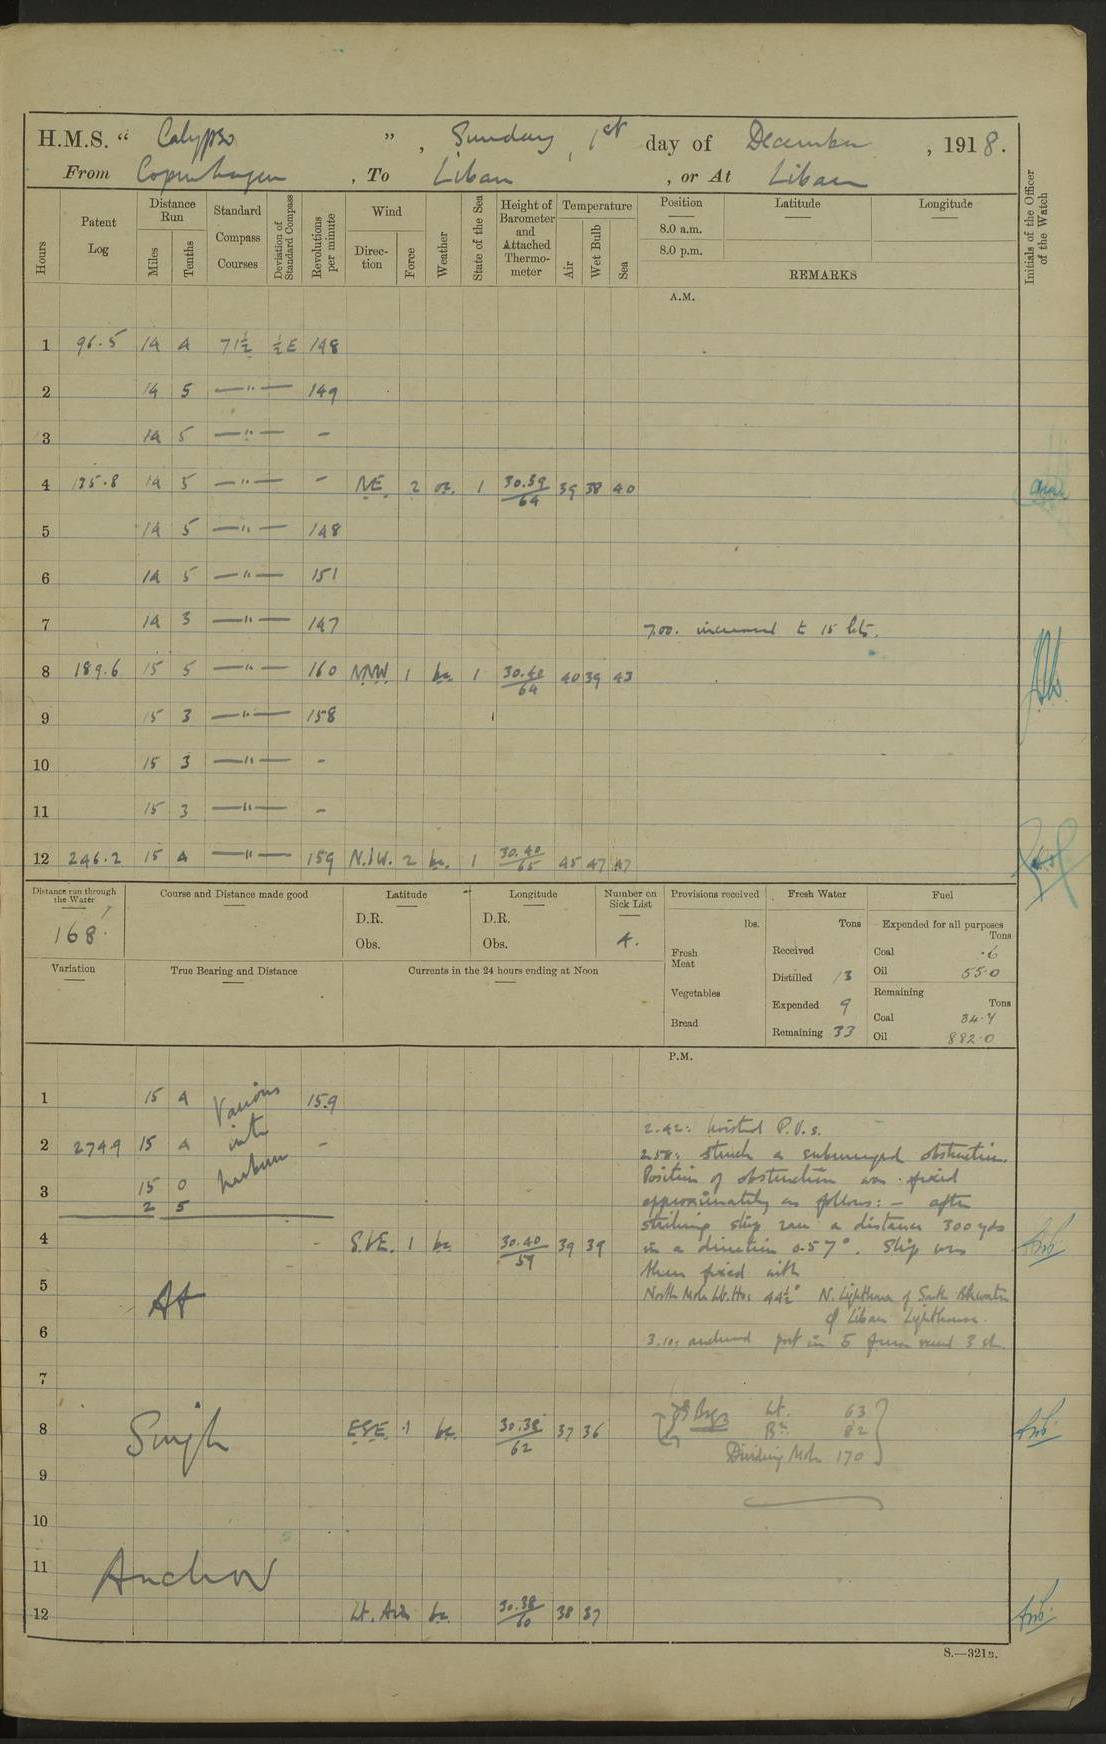 H.M.S. “ Calypso ” , Sunday , 1st day of December , 1918.
From Copenhagen , To Libau , or At Libau
Hours
Patent Log
Distance Run
Miles
Tenths
Standard Compass Courses
Deviation of Standard Compass
Revolutions per minute
Wind
Direction
Force
Weather
State of the Sea
Height of Barometer and Attached Thermometer
Temperature
Air
Wet Bulb
Sea
Position
8.0 a.m.
8.0 p.m.
Latitude
Longitude
REMARKS
Initials of the Officer of the Watch
A.M.
1 96.5 14 4 71½ ½E 148
2 14 5 —"— 149
3 14 5 —"— -
4 135.8 14 5 —"— - NE. 2 1 30.39/64 39 38 40
5 14 5 —"— 148
6 14 5 —"— 151
7 14 3 —"— 147 7.00. increased to 15 kts.
8 189.6 15 5 —"— 160 NNW 1 bc. 1 30.40/64 40 39 43
9 15 3 —"— 158
10 15 3 —"— -
11 15 3 —"— -
12 246.2 15 4 —"— 159 2 bc. 1 30.40/65 45 47 47
Distance run through the Water
168.
Course and Distance made good
Latitude
D.R.
Obs.
Longitude
D.R.
Obs.
Number on Sick List
4.
Provisions received
lbs.
Fresh Meat
Vegetables
Bread
Fresh Water
Tons
Received
Distilled 13
Expended 9
Remaining 33
Fuel
Expended for all purposes
Tons
Coal .6
Oil 55.0
Remaining
Tons
Coal 34.4
Oil 882.0
Variation
True Bearing and Distance
Currents in the 24 hours ending at Noon
P.M.
1 15 4 Various 159
2 274.9 15 4 into -
3 15 0 harbour
2 5
2.42: hoisted P.V.s.
2.58: Struck a submerged obstruction.
Position of obstruction was fixed
approximately as follows: – after
striking ship ran a distance 300 yds
in a direction 057°. Ship was
then fixed with
North Mole Lt. Ho: 44½° N. Lighthouse of South Bkwater
of Libau Lighthouse.
3.10, anchored port in 5
4 - 1 bc. 30.40/59 39 39
5
6
At
7
8 ESE. 1 bc. 30.38/62 37 36
Single
9
10
11
Anchor
12 Lt. Airs bc. 30.38/60 38 37
Brgs Lt. 63
82
Dividing Mole 170
S.—321B.